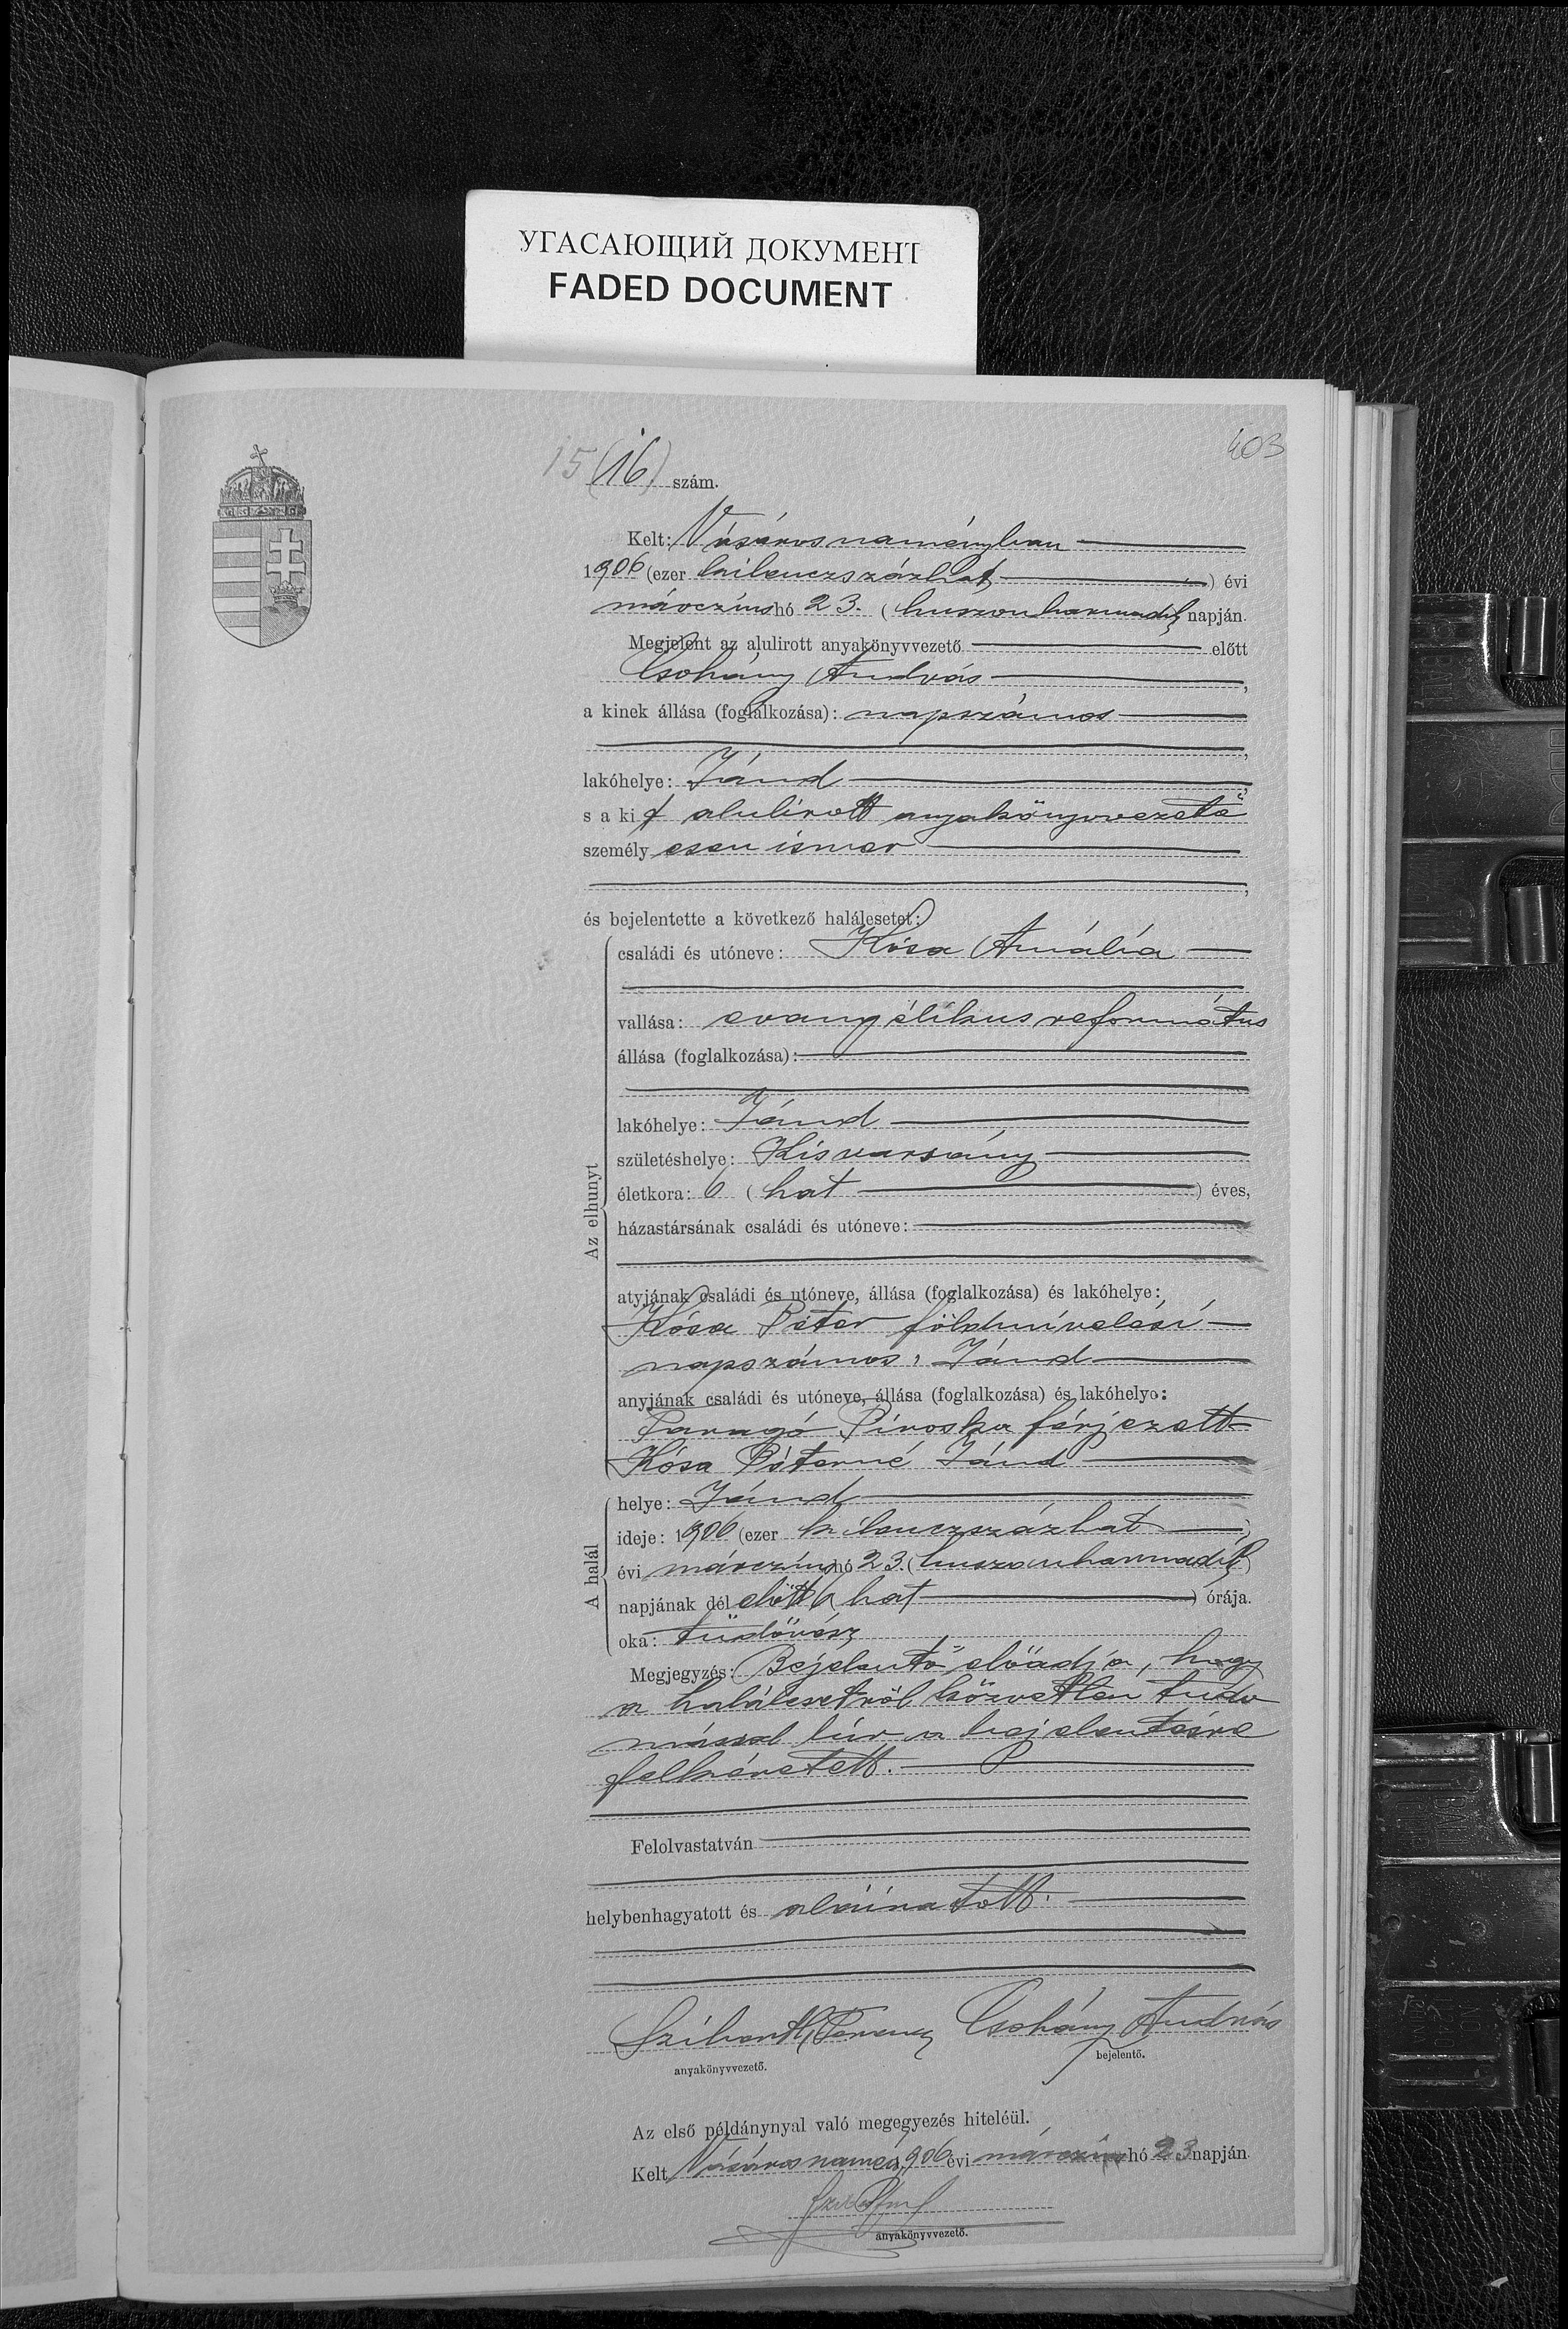 УГАСАЮЩИЙ ДОКУМЕНТ
FADED DOCUMENT
403
15 (16) szám.
Kelt: Vásárosnaményban
1906 (ezer kilenczszázhat) évi
márczius hó 23. (huszonharmadik napján.
Megjelent az alulirott anyakönyvvezető előtt
Csohány András,
a kinek állása (foglalkozása): napszámos
,
lakóhelye: Jánd,
s a kit alulirott anyakönyvvezető
személyesen ismer
,
és bejelentette a következő halálesetet:
Az elhunyt
családi és utóneve: Kósa Amália
vallása: evangélikus református
állása (foglalkozása):
lakóhelye: Jánd
születéshelye: Kisvarsány
életkora: 6 (hat) éves,
házastársának családi és utóneve:
atyjának családi és utóneve, állása (foglalkozása) és lakóhelye:
Kósa Péter földmívelési
napszámos, Jánd
anyjának családi és utóneve, állása (foglalkozása) és lakóhelye:
Faragó Piroska férjezett
Kósa Péterné Jánd
A halál
helye: Jánd
ideje: 1906 (ezer kilenczszázhat)
évi márczius hó 23. (huszonharmadik)
napjának délelőtt 6 (hat) órája.
oka: tüdővész
Megjegyzés: Bejelentő előadja, hogy
a halálesetről közvetlen tudo
mással bír a bejelentésre
felkéretett.
Felolvastatván
helybenhagyatott és aláiratott.
Ferencz Csohány András
anyakönyvvezető. bejelentő.
Az első példánynyal való megegyezés hiteléül.
Kelt Vásárosnamény, 1906 évi márczius hó 23 napján
anyakönyvvezető.